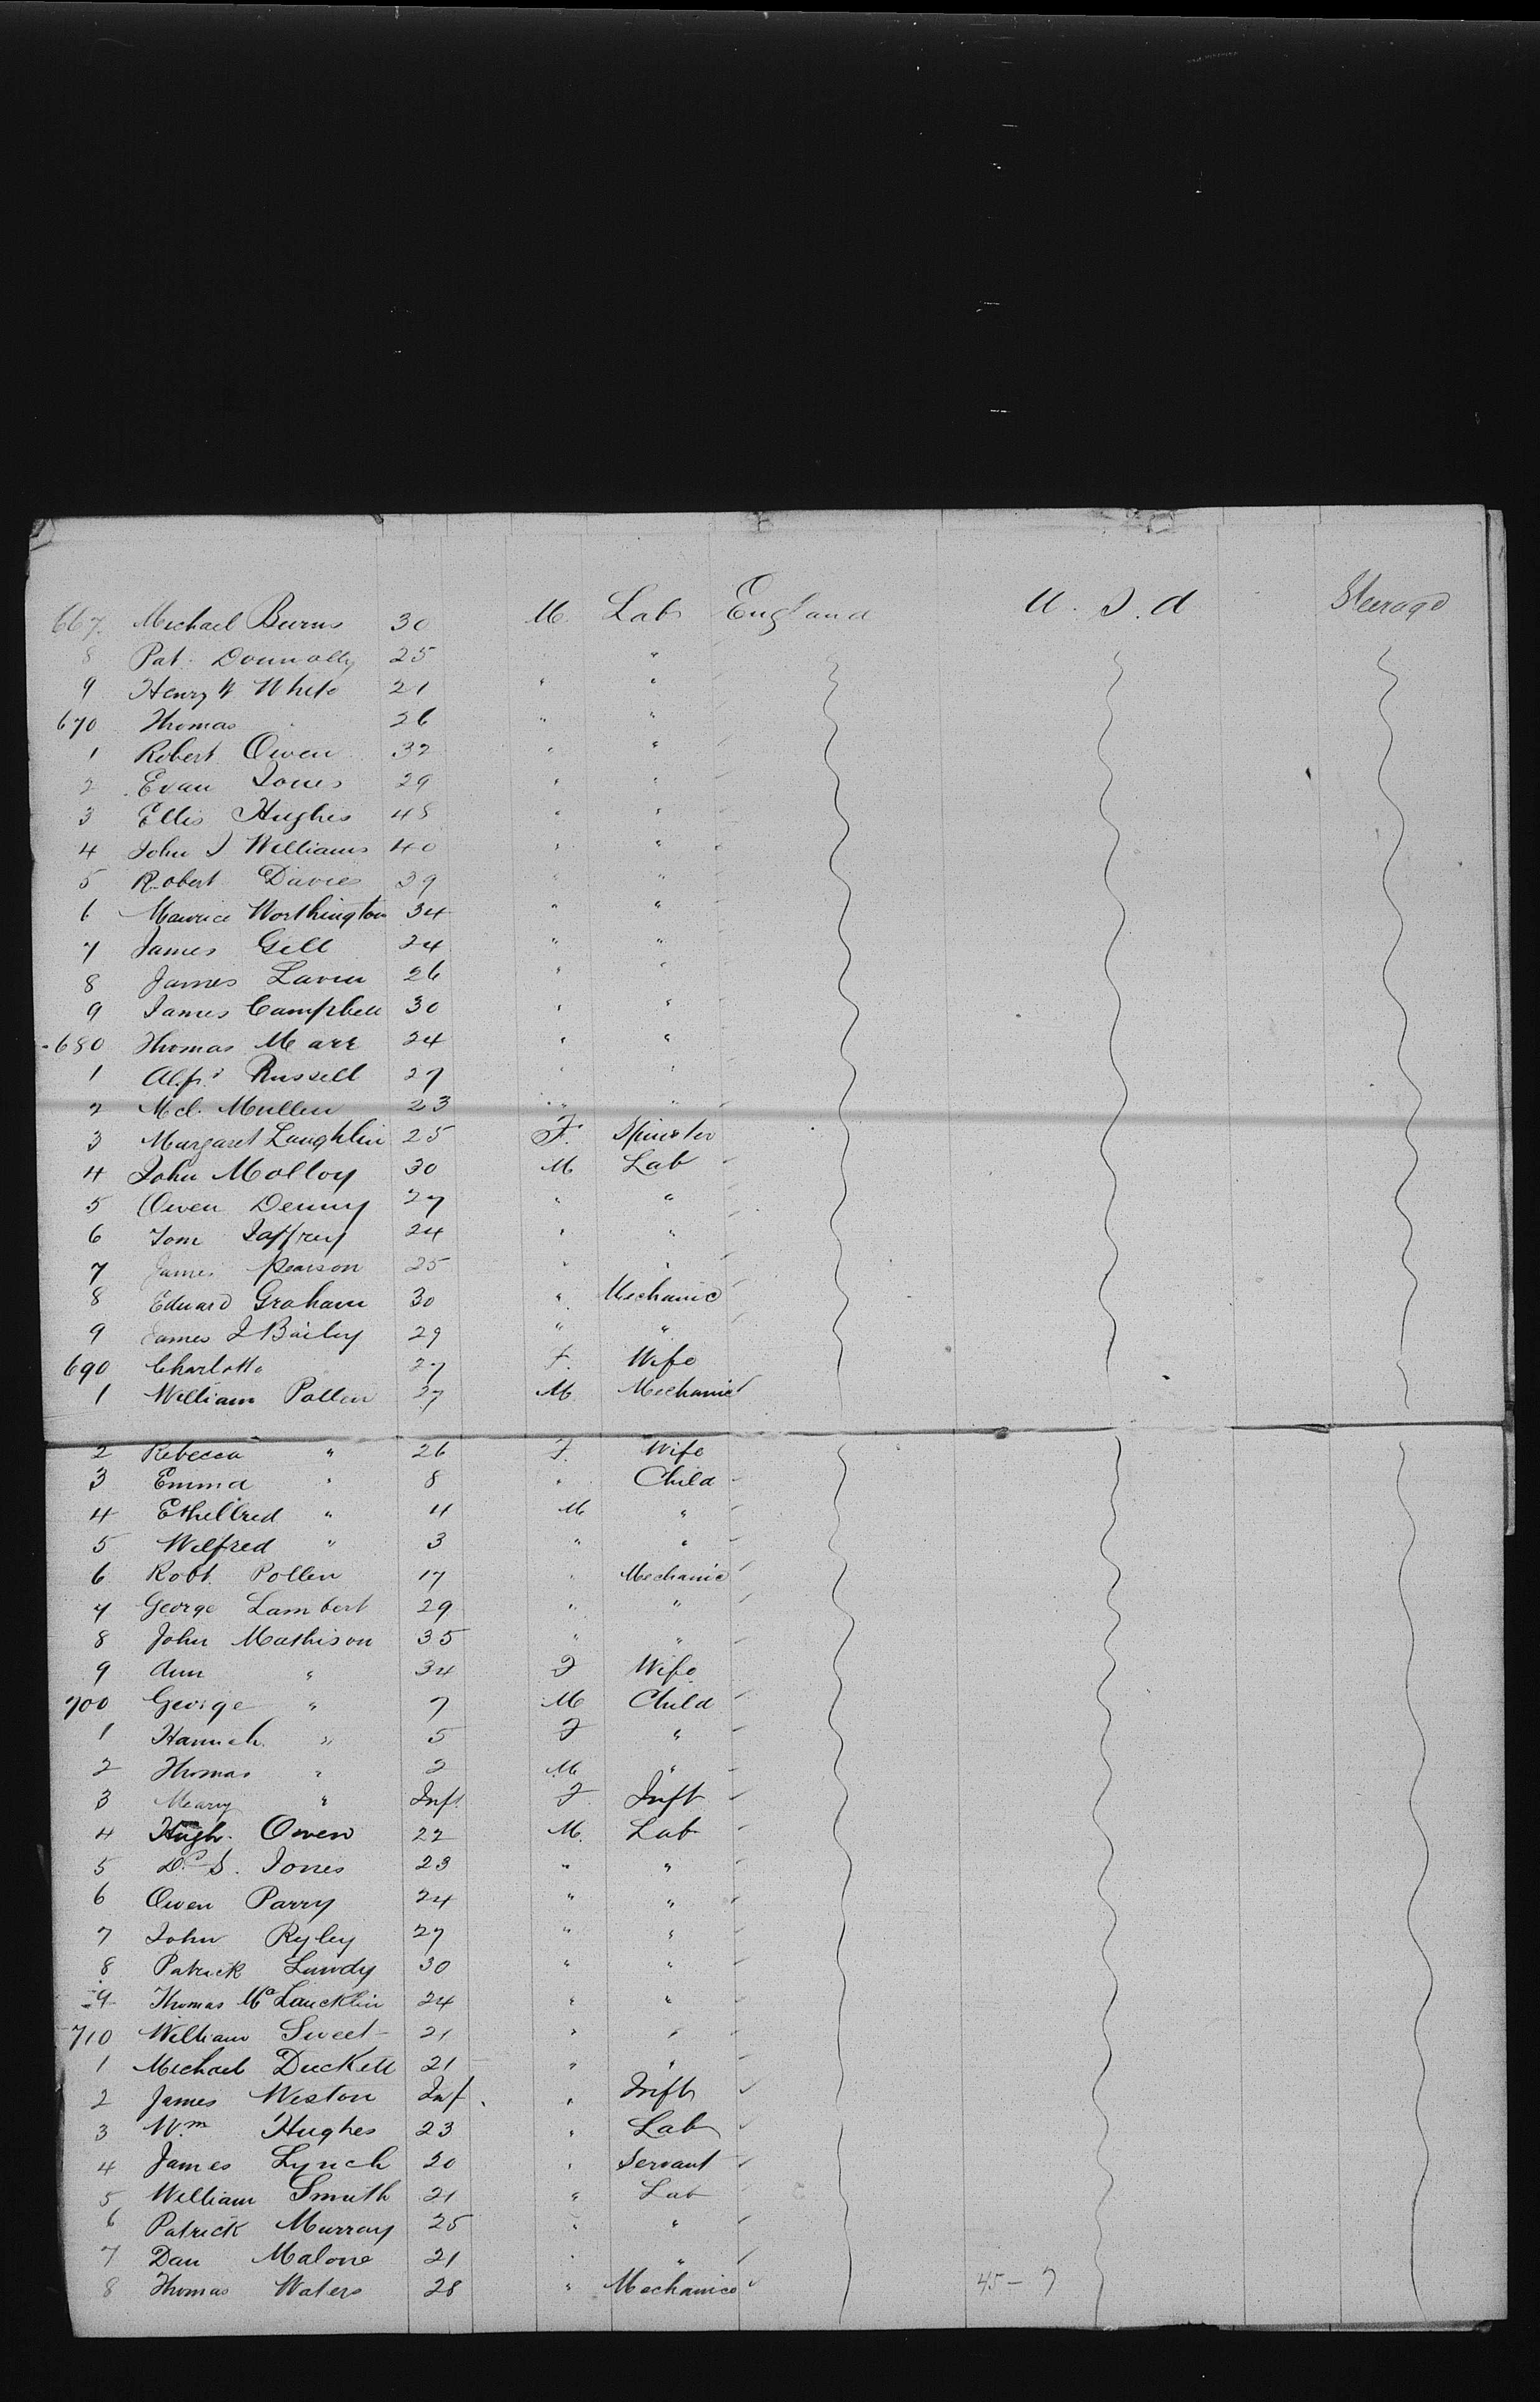 667. Michael Burns 30 M. Lab England U. S. A Steerage
8 Pat. Donnolly 25 "
9 Henry W. White 21 " "
670 Thomas 26 " "
1 Robert Owen 32 " "
2 Evan Jones 29 " "
3 Ellis Hughes 48 " "
4 John J Williams 40 " "
5 Robert Davies 39 " "
6 Maurice Worthington 34 " "
7 James Gill 24 " "
8 James Laven 26 " "
9 James Campbell 30 " "
680 Thomas Marr 24 " "
1 Alfd Russell 27 " "
2 Mcl. Mullen 23 " "
3 Margaret Laughlin 25 F. Spinster
4 John Molloy 30 M Lab
5 Owen Denny 27 " "
6 Tom Jaffrey 24 " "
7 James Pearson 25 " "
8 Edward Graham 30 " Mechanic
9 James J Bailey 29 " "
690 Charlotte 27 F. Wife
1 William Pollen 27 M. Mechanic
2 Rebecca " 26 F. Wife
3 Emma " 8 " Child
4 Ethelbred " 4 M "
5 Wilfred " 3 " "
6 Robt. Pollen 17 " Mechanic
7 George Lambert 29 " "
8 John Mathison 35 " "
9 Ann " 34 F Wife
700 George " 7 M Child
1 Hannah " 5 F "
2 Thomas " 2 M "
3 Meary " Inft. F. Inft
4 Hugh. Owen 22 M. Lab
5 Dd S. Jones 23 " "
6 Owen Parry 24 " "
7 John Ryley 27 " "
8 Patrick Lundy 30 " "
9 Thomas McLaucklin 24 " "
710 William Sweet 21 " "
1 Michael Duckett 21 " "
2 James Weston Inf. " Inft
3 Wm Hughes 23 " Lab
4 James Lynch 20 " Servant
5 William Smith 21 " Lab
6 Patrick Murray 25 " "
7 Dan Malone 21 " "
8 Thomas Waters 28 " Mechanic 45 - 7